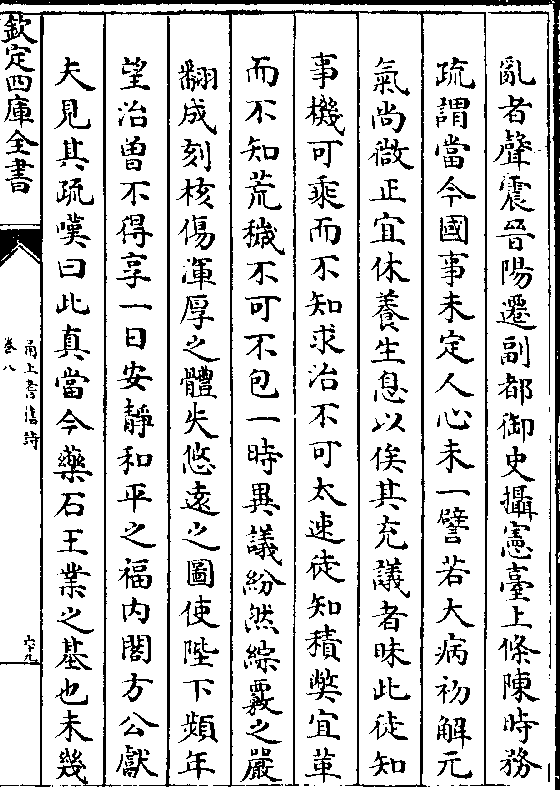 亂者聲震晉陽遷副都御史攝憲臺上條陳時務
疏謂當今國事未定人心未一譬若大病初解元
氣尚微正宜休養生息以俟其充議者昧此徒知
事機可乘而不知求治不可太速徒知積獘宜革
而不知荒穢不可不包一時異議紛然綜覈之嚴
翻成刻核傷渾厚之體失悠遠之圖使陛下頻年
望治曽不得享一日安靜和平之福内閣方公獻
夫見其疏嘆曰此真當今藥石王業之基也未幾
欽定四庫全書
甬上耆舊詩
卷八
六十九